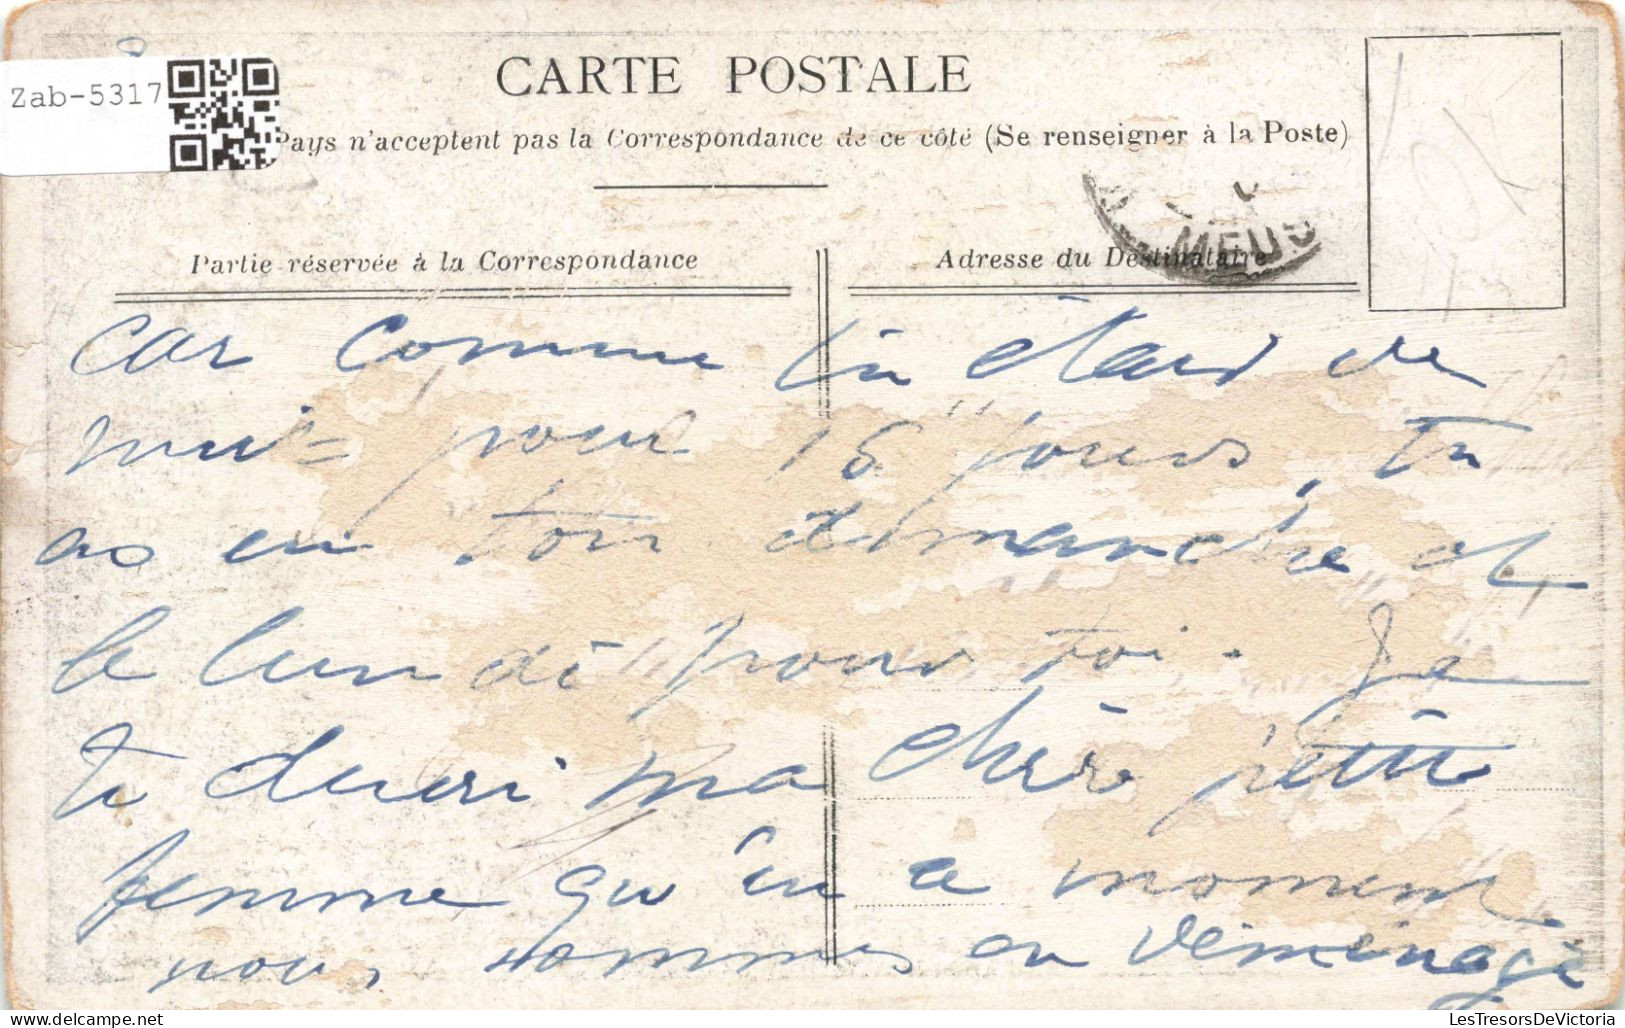 Zab-5317
CARTE POSTALE
Pays n'acceptent pas la Correspondance de ce côté (Se renseigner à la Poste)
MEUS
Partie réservée à la Correspondance
Adresse du Destinataire
car comme tu étais de
nuit = pour 15 jours, tu
as eu ton dimanche et
le lundi pour toi. Je
te dirai ma chère petite
femme qu'en ce moment
nous sommes en déménage
LesTresorsDeVictoria